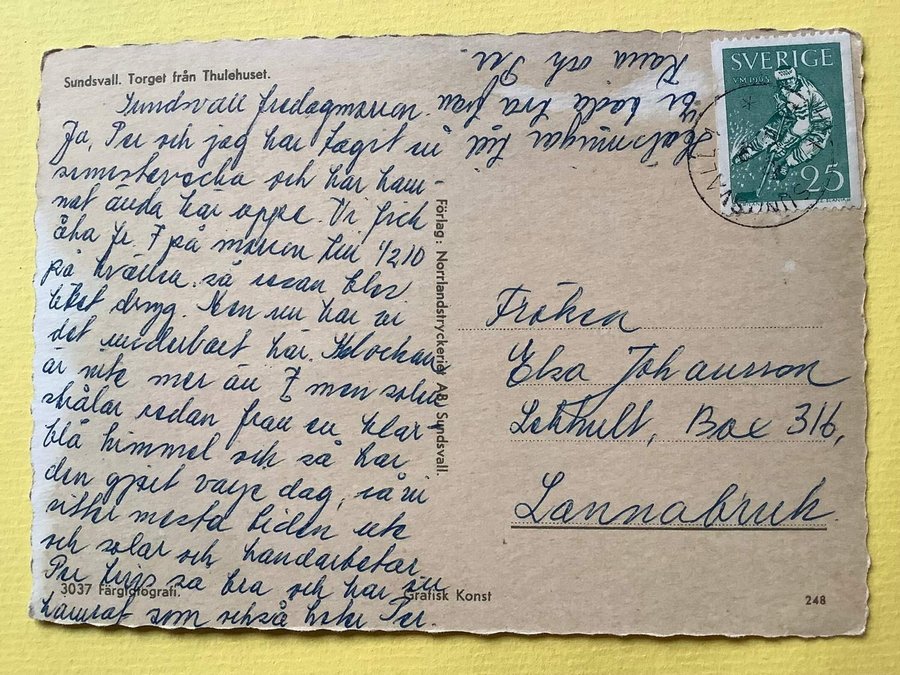 Sundsvall. Torget från Thulehuset.
Sundsvall fredagmorron.
Ja, Per och jag har tagit en
semestervecka och har ham-
nat ända här uppe. Vi fick
åka fr. 7 på morron till 1/2 10
på kvällen, så resan blev
litet dryg. Men nu har vi
det underbart här. Klockan
är inte mer än 7 men solen
strålar redan från en klar-
blå himmel och så har
den gjort varje dag, så vi
sitter mesta tiden ute
och solar och handarbetar
Per trivs så bra och har en
kamrat som också heter Per.
Hälsningar till
Er båda två från
och Per
Förlag: Norrlandstryckeriet AB, Sundsvall.
3037 Färgfotografi.
Grafisk Konst
248
SVERIGE
VM 1963
25
SUNDSVALL
Fröken
Elsa Johansson
Lekhult, Box 316,
Lannabruk.